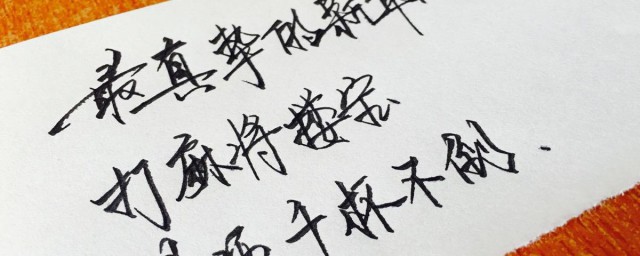 最真挚的新年
打麻将搂宝
千杯不倒.